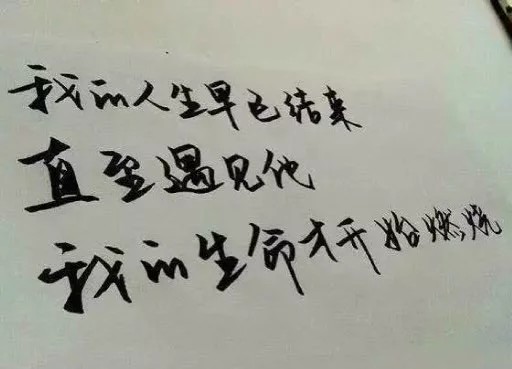 我的人生早已结束
直至遇见他
我的生命才开始燃烧